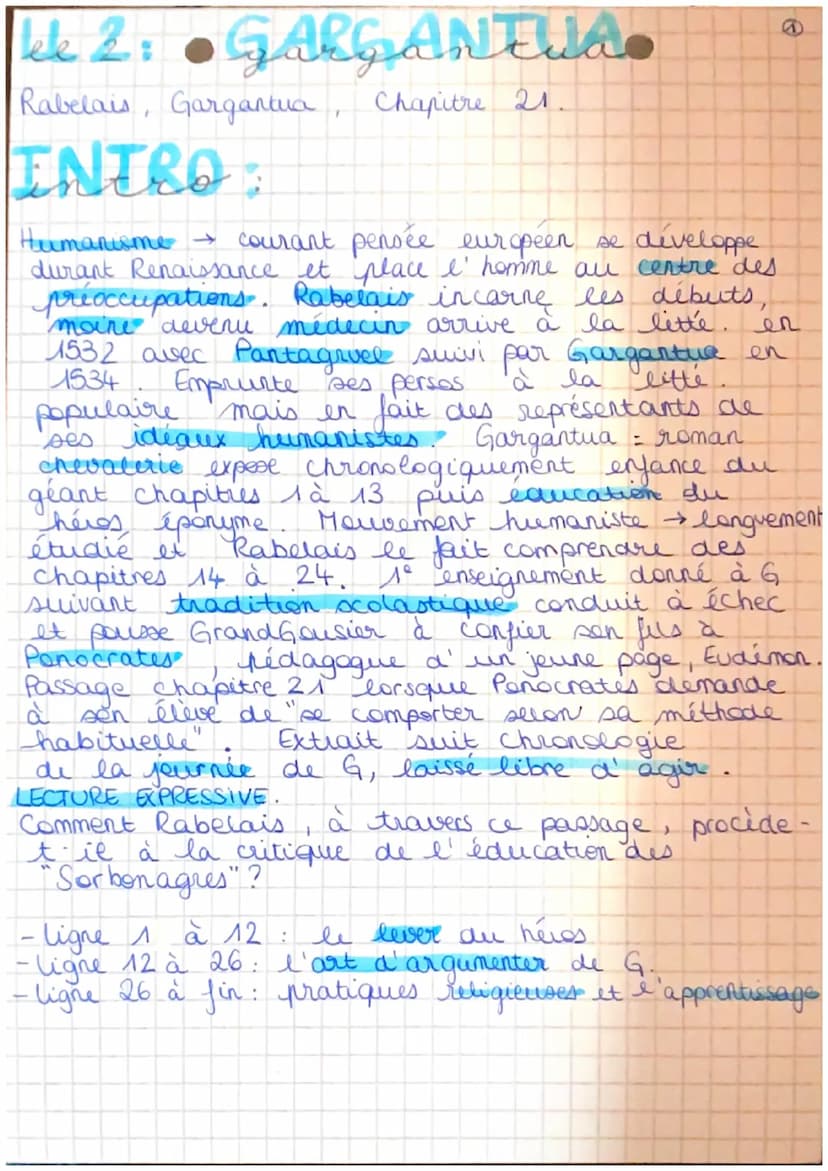 ①
LL 2 : GARGANTUA
gargantua
Rabelais, Gargantua, Chapitre 21.
INTRO :
intro :
Humanisme → courant pensée européen se développe
durant Renaissance et place l'homme au centre des
préoccupations. Rabelais incarne les débuts,
moine devenu médecin arrive à la litté. en
1532 avec Pantagruel suivi par Gargantua en
1534. Emprunte ses persos à la litté.
populaire mais en fait des représentants de
ses idéaux humanistes. Gargantua = roman
chevalerie expose chronologiquement enfance du
géant chapitres 1 à 13 puis éducation du
héros éponyme. Mouvement humaniste → longuement
étudié et Rabelais le fait comprendre des
chapitres 14 à 24. 1° enseignement donné à G
suivant tradition scolastique conduit à échec
et pousse GrandGousier à confier son fils à
Ponocrates, pédagogue d'un jeune page, Eudémon.
Passage chapitre 21 lorsque Ponocrates demande
à son élève de "se comporter selon sa méthode
habituelle". Extrait suit chronologie
de la journée de G, laissé libre d'agir.
LECTURE EXPRESSIVE.
Comment Rabelais, à travers ce passage, procède-
t-il à la critique de l'éducation des
"Sorbonagres" ?
- ligne 1 à 12 : le lever du héros
- ligne 12 à 26 : l'art d'argumenter de G.
- ligne 26 à fin : pratiques religieuses et l'apprentissage